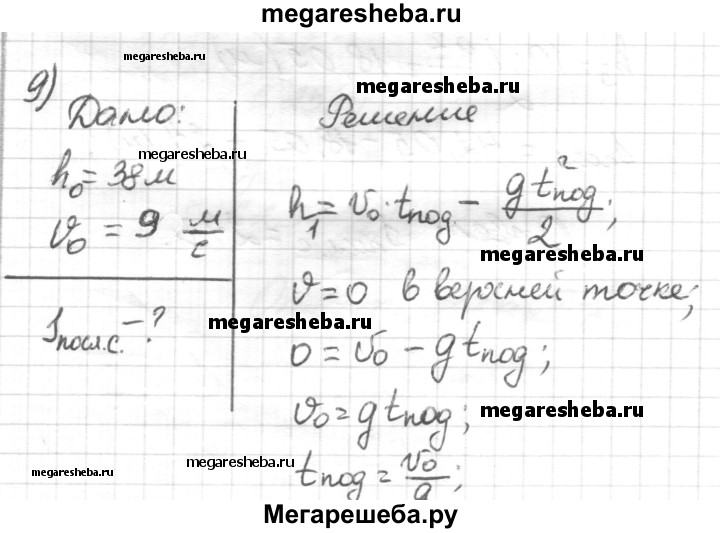 megaresheba.ru
megaresheba.ru
9)
Дано:
megaresheba.ru
Решение
megaresheba.ru
h₀ = 38 м
v₀ = 9 м/с
h₁ = v₀ · tпод − g tпод² / 2;
megaresheba.ru
v = 0 в верхней точке;
megaresheba.ru
Sпосл.с. − ?
0 = v₀ − g tпод;
megaresheba.ru
v₀ = g tпод;
megaresheba.ru
megaresheba.ru
megaresheba.ru
tпод = v₀/g;
Мегарешеба.ру